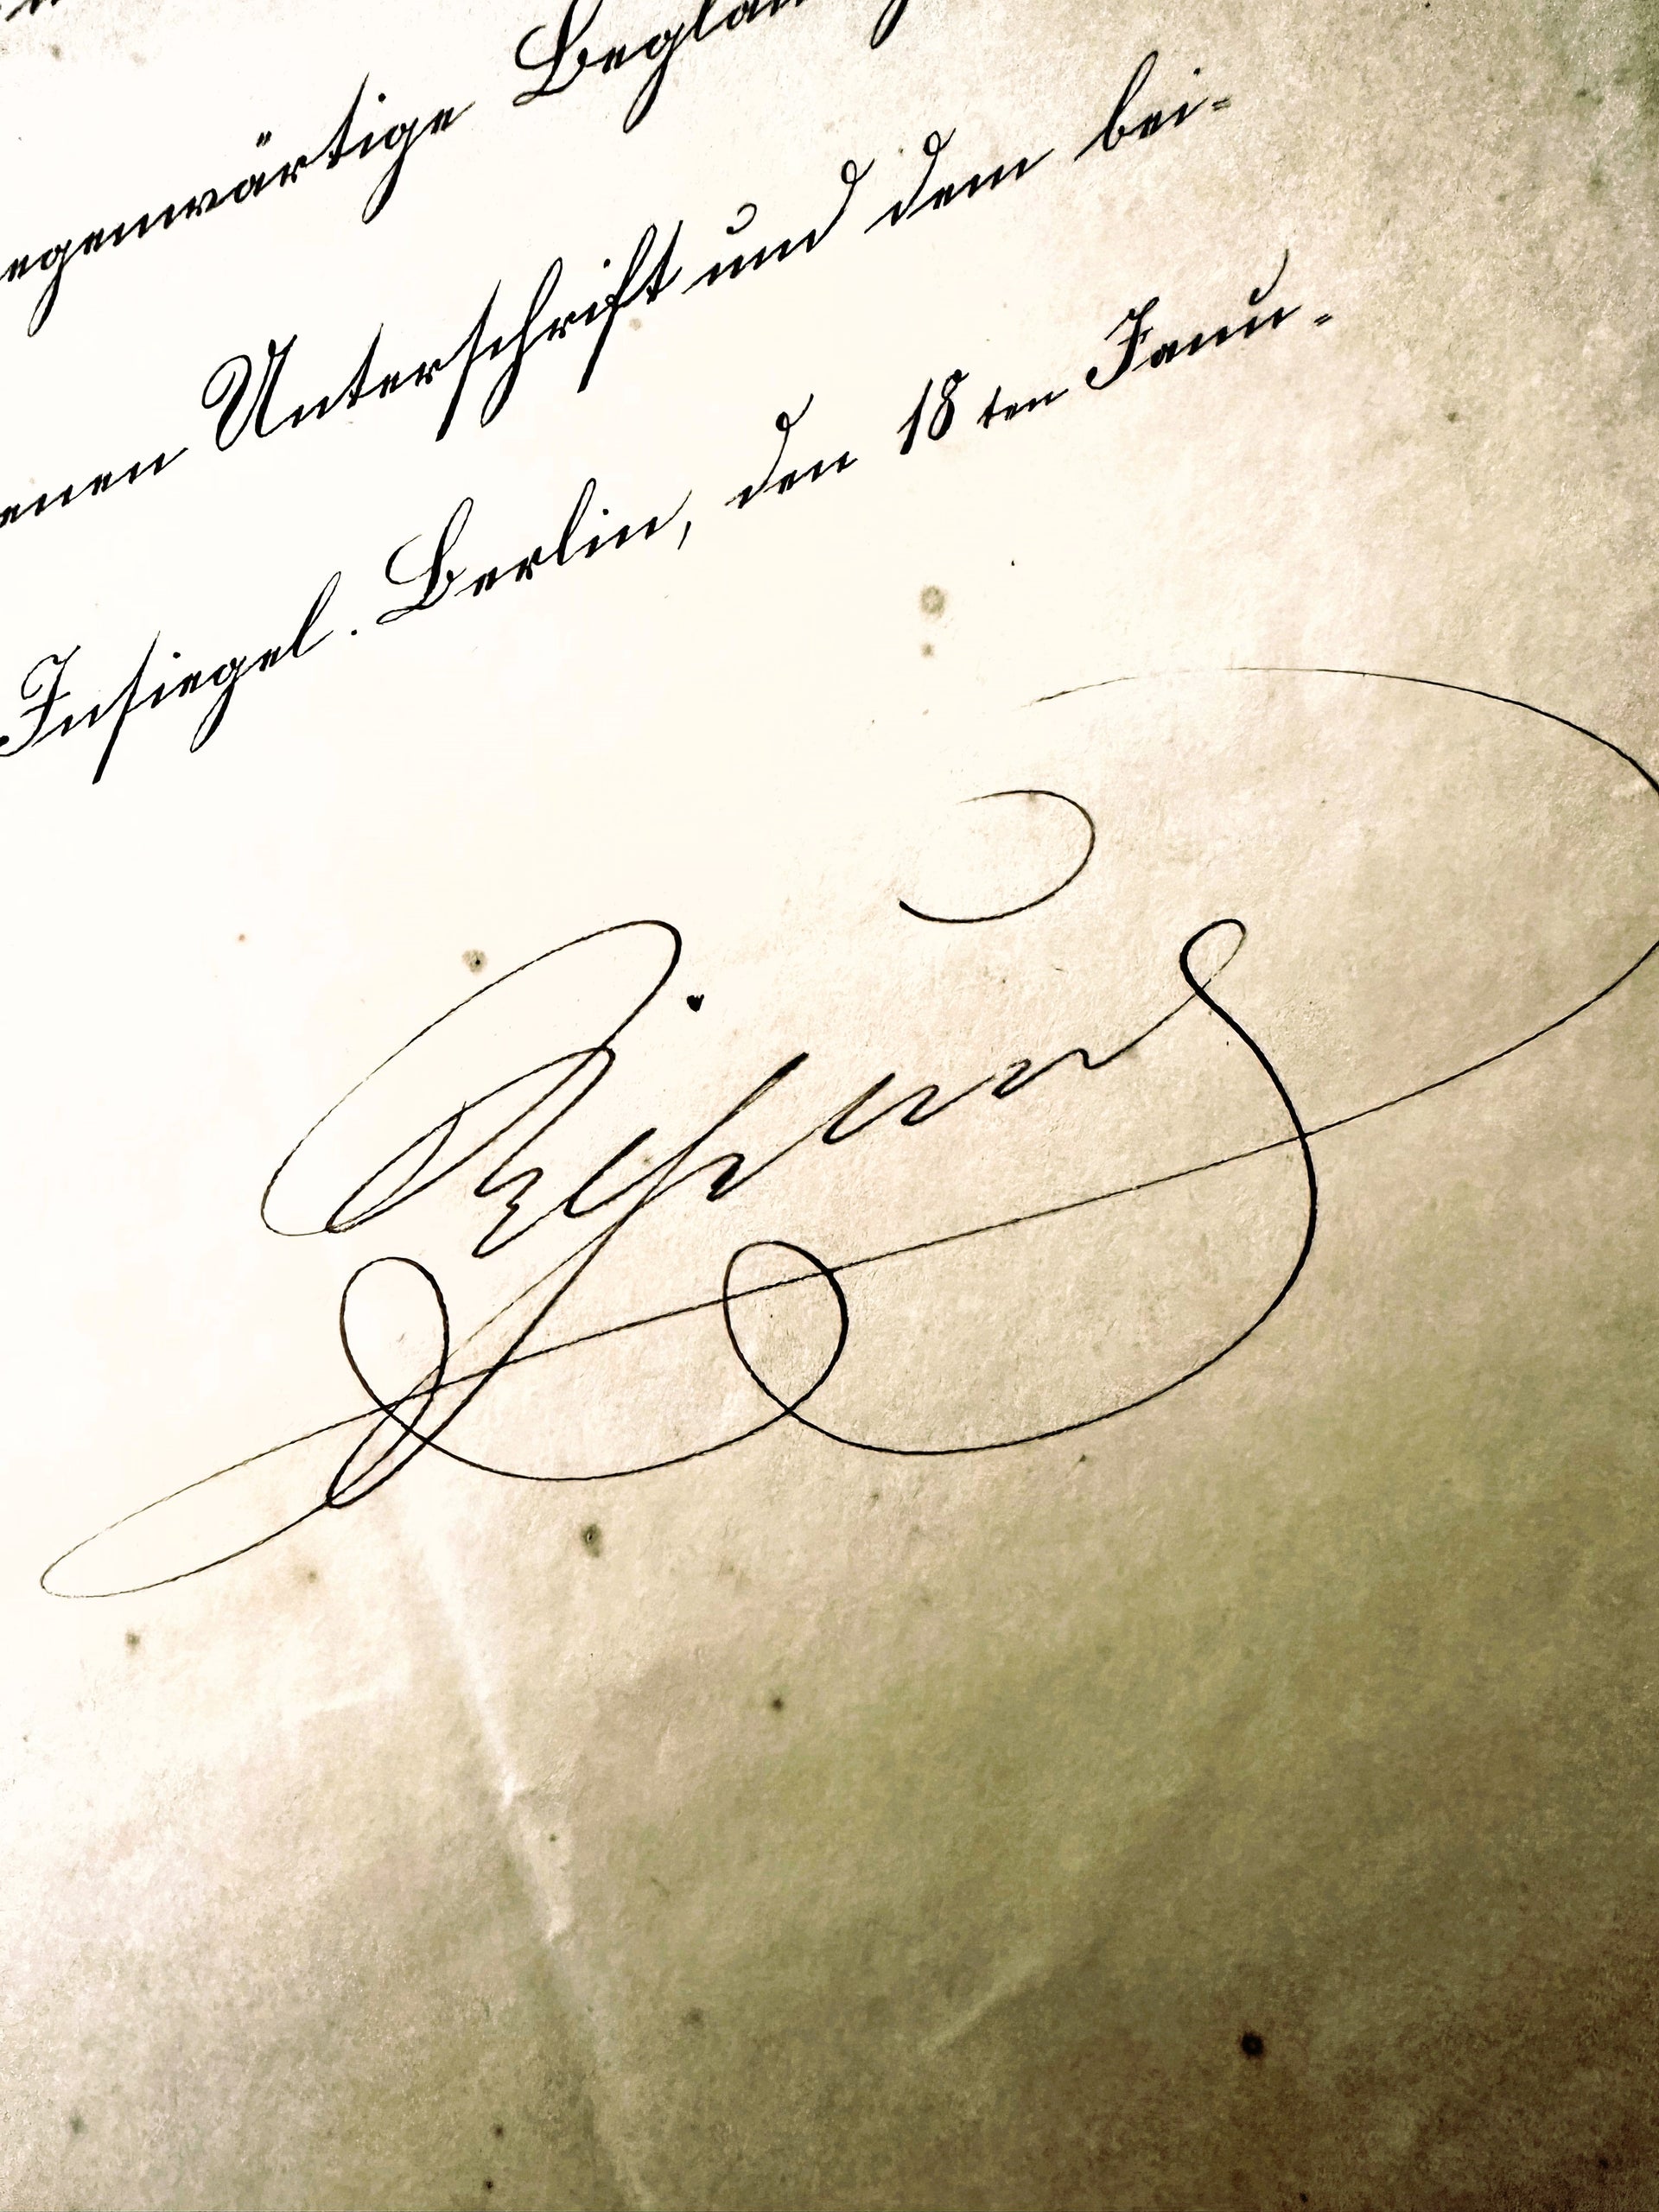 egenwärtige Beglau
enen Unterschrift und dem bei=
Insiegel. Berlin, den 18ten Janu=